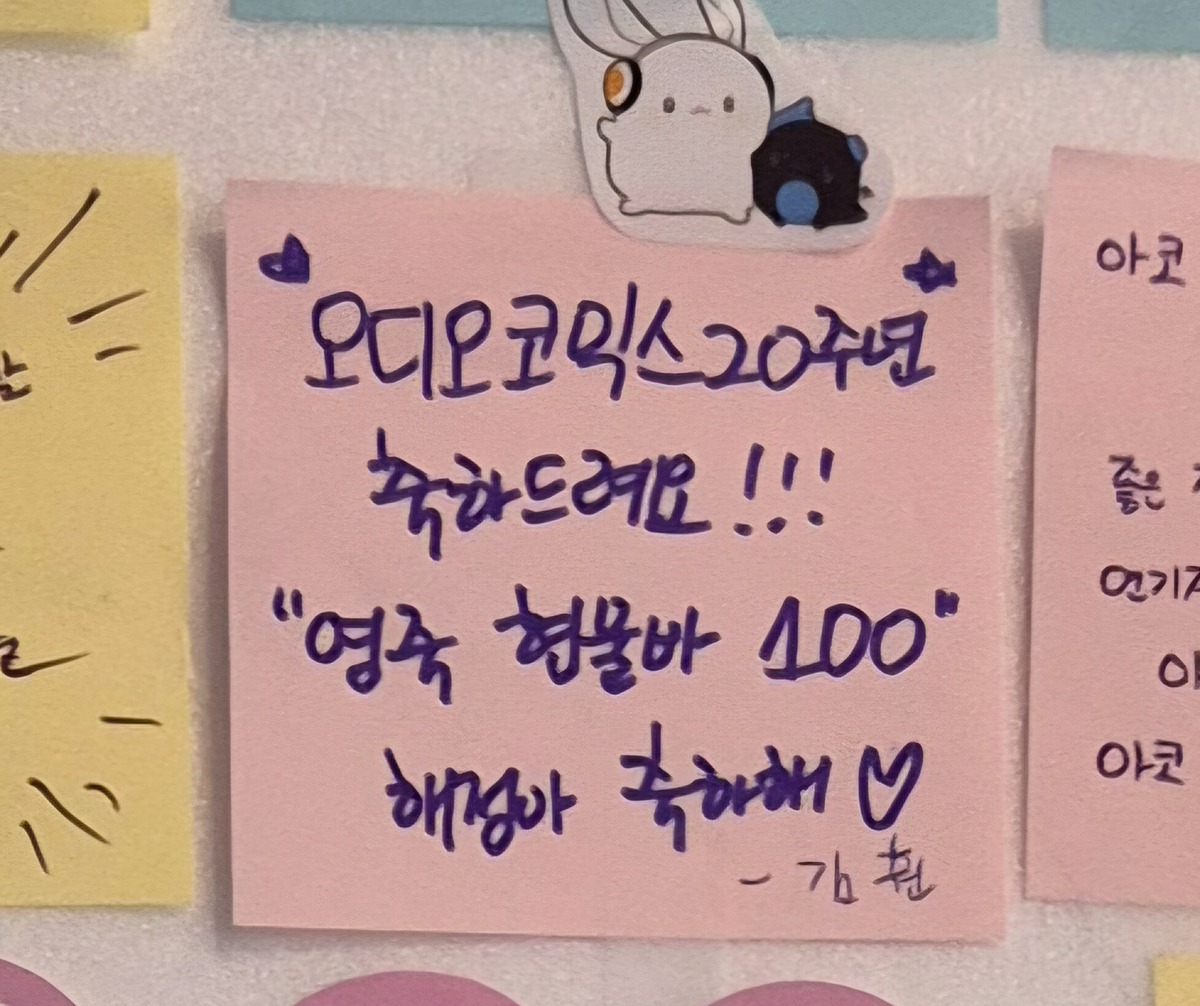 오디오코믹스20주년
축하드려요!!!
"영죽 현물바 100"
해정아 축하해♡
- 김훤
아코
좋은
연기자
아코